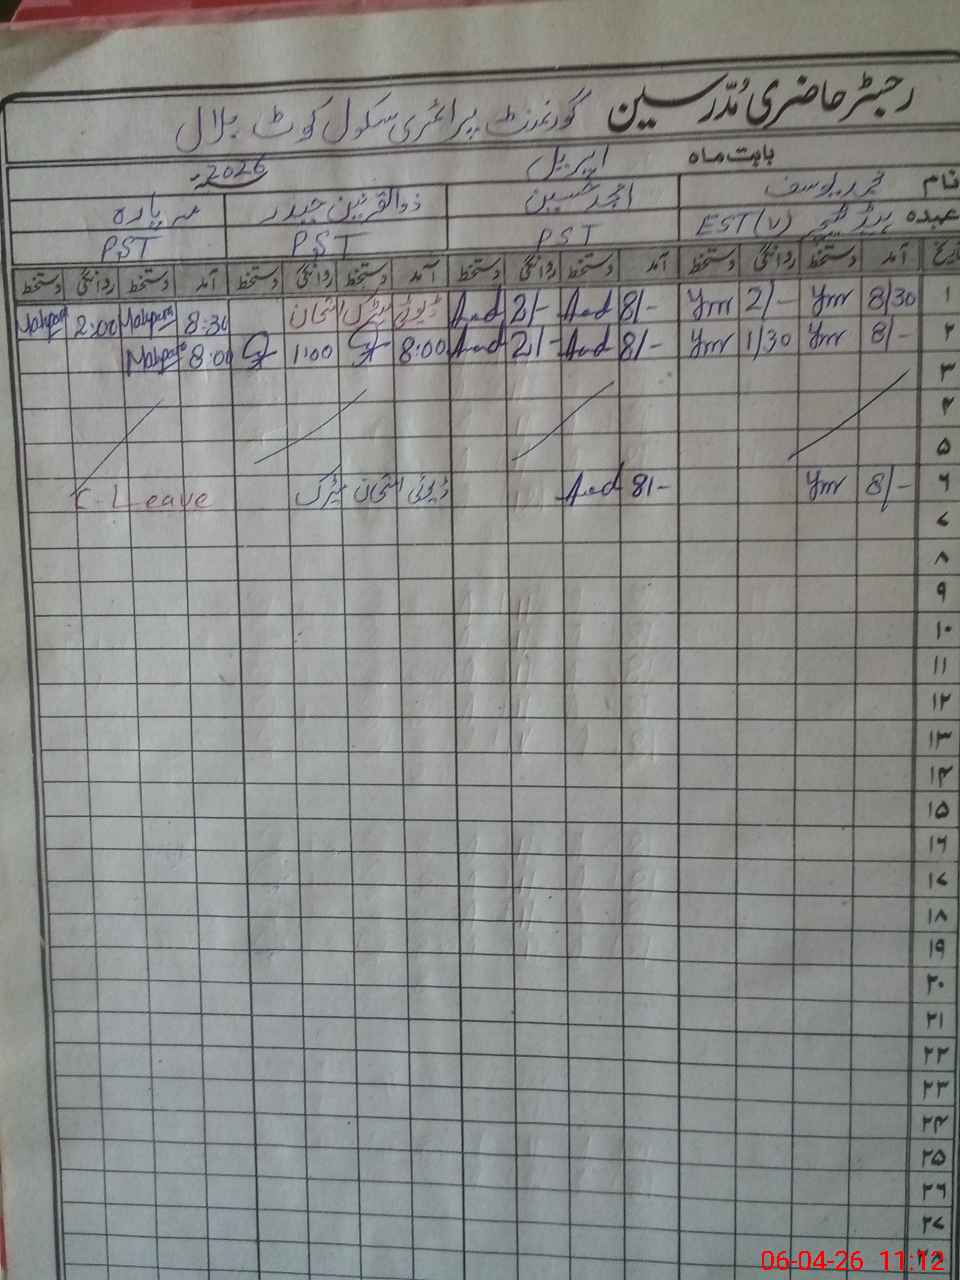 رجسٹر حاضری مدرسین گورنمنٹ پرائمری سکول کوٹ بلال
بابت ماہ اپریل 2026ء
نام محمد یوسف امجد حسین ذوالقرنین حیدر مہ پارہ
عہدہ ہیڈ ٹیچر EST(V) PST PST PST
تاریخ آمد دستخط روانگی دستخط آمد دستخط روانگی دستخط آمد دستخط روانگی دستخط آمد دستخط روانگی دستخط
۱ 8/30 Ymr 2/- Ymr 8/- 2/- ڈیوٹی میٹرک امتحان 8:30 Mahpara 2:00 Mahpara
۲ 8/- Ymr 1/30 Ymr 8/- 2/- 8:00 1:00 8:00 Mahpara
۳
۴
۵
۶ 8/- Ymr 8/- ڈیوٹی امتحان میٹرک C-Leave
۷
۸
۹
۱۰
۱۱
۱۲
۱۳
۱۴
۱۵
۱۶
۱۷
۱۸
۱۹
۲۰
۲۱
۲۲
۲۳
۲۴
۲۵
۲۶
۲۷
۲۸
06-04-26 11:12